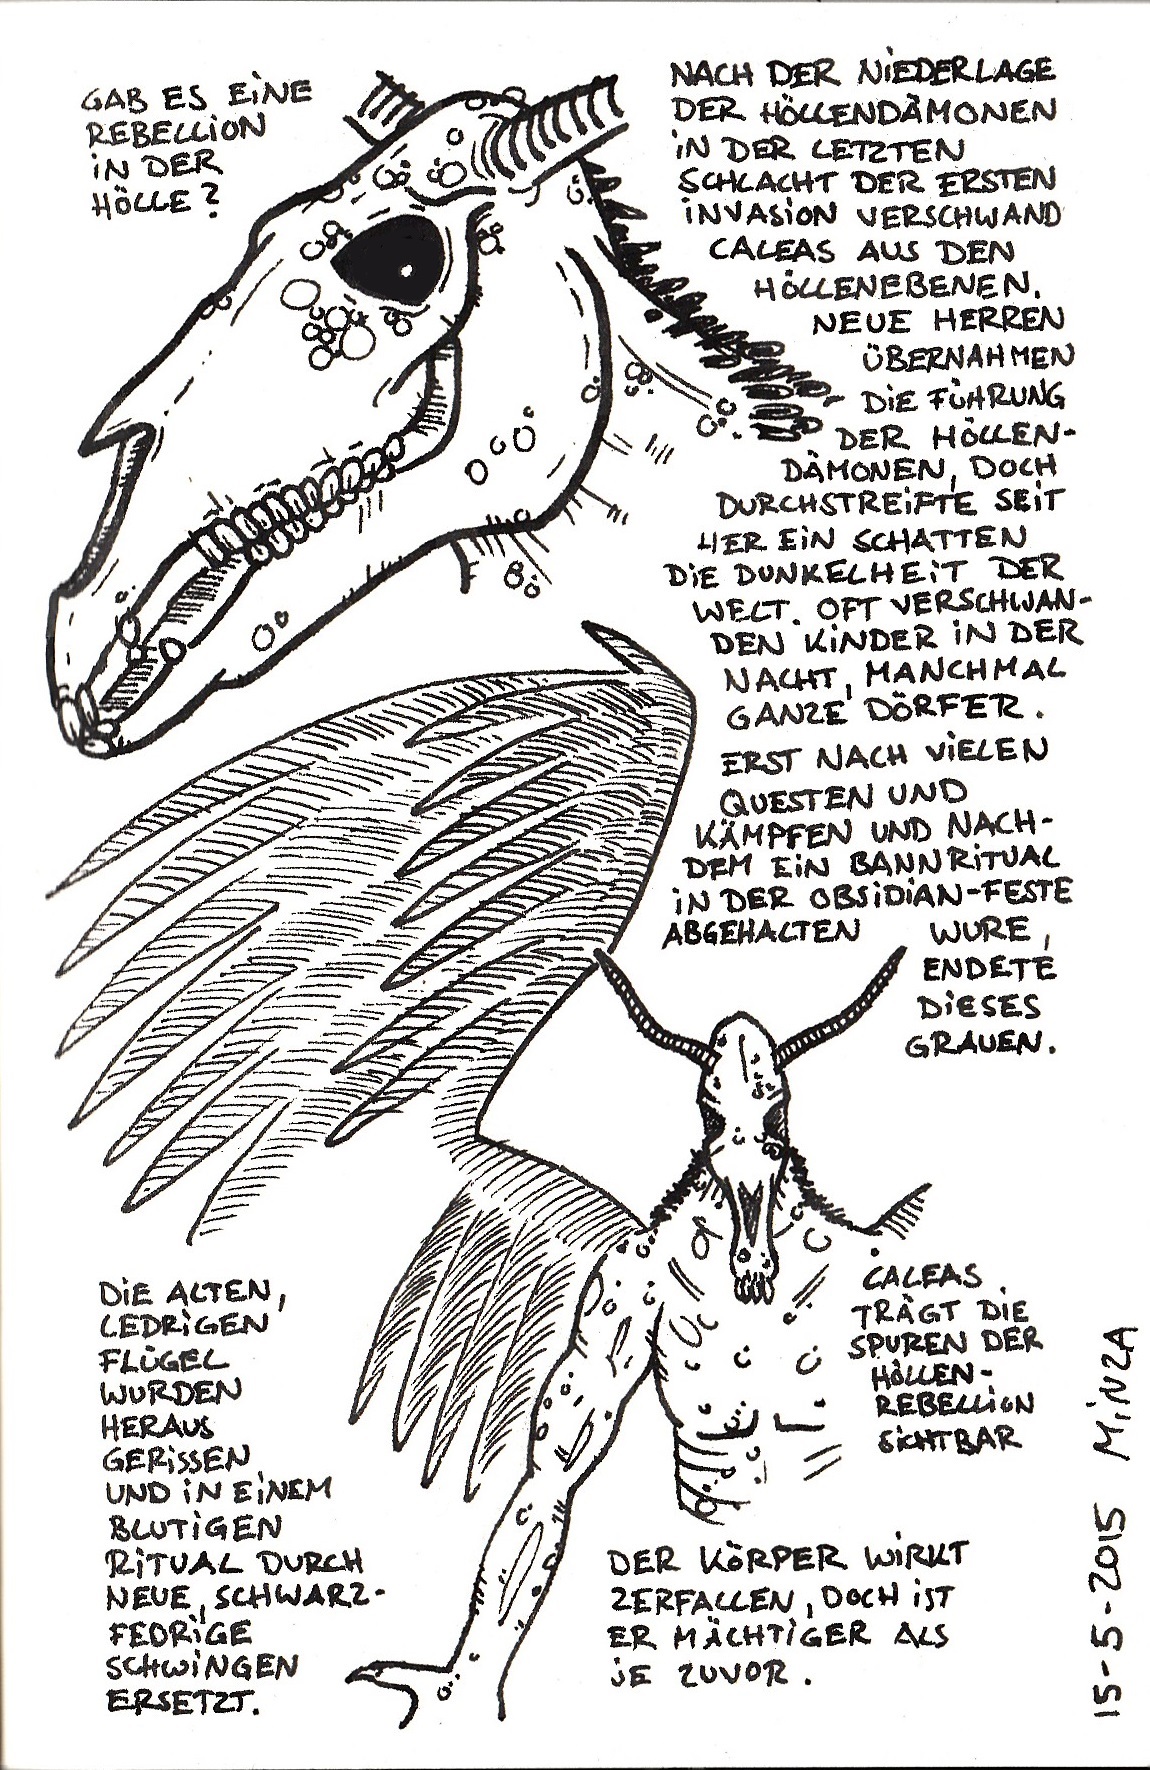 GAB ES EINE
REBELLION
IN DER
HÖLLE?
NACH DER NIEDERLAGE
DER HÖLLENDÄMONEN
IN DER LETZTEN
SCHLACHT DER ERSTEN
INVASION VERSCHWAND
CALEAS AUS DEN
HÖLLENEBENEN.
NEUE HERREN
ÜBERNAHMEN
DIE FÜHRUNG
DER HÖLLEN-
DÄMONEN, DOCH
DURCHSTREIFTE SEIT
HER EIN SCHATTEN
DIE DUNKELHEIT DER
WELT. OFT VERSCHWAN-
DEN KINDER IN DER
NACHT, MANCHMAL
GANZE DÖRFER.
ERST NACH VIELEN
QUESTEN UND
KÄMPFEN UND NACH-
DEM EIN BANNRITUAL
IN DER OBSIDIAN-FESTE
ABGEHALTEN WURE,
ENDETE
DIESES
GRAUEN.
DIE ALTEN,
LEDRIGEN
FLÜGEL
WURDEN
HERAUS
GERISSEN
UND IN EINEM
BLUTIGEN
RITUAL DURCH
NEUE, SCHWARZ-
FEDRIGE
SCHWINGEN
ERSETZT.
CALEAS
TRÄGT DIE
SPUREN DER
HÖLLEN-
REBELLION
SICHTBAR
DER KÖRPER WIRKT
ZERFALLEN, DOCH IST
ER MÄCHTIGER ALS
JE ZUVOR.
15-5-2015 MINZA